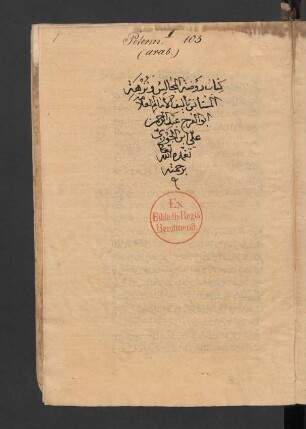 1
Peterm. I 103
(arab.)
كتاب روضة المجالس ونزهة
المستأنس تأليف الامام العلامة
ابو الفرج عبد الرحمن
علي ابن الجوزي
تغمده الله
برحمته
Ex
Biblioth. Regia
Berolinensi.